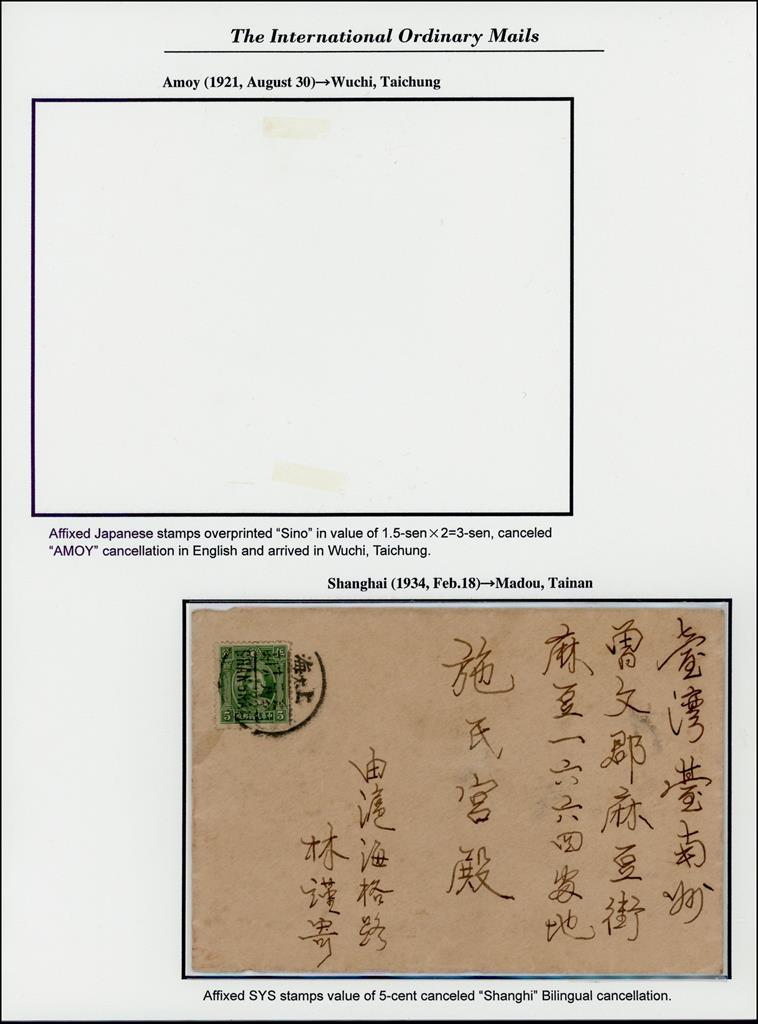 The International Ordinary Mails
Amoy (1921, August 30)→Wuchi, Taichung
Affixed Japanese stamps overprinted “Sino” in value of 1.5-sen×2=3-sen, canceled
“AMOY” cancellation in English and arrived in Wuchi, Taichung.
Shanghai (1934, Feb.18)→Madou, Tainan
臺灣臺南州
曾文郡麻豆街
麻豆一六六四番地
施氏宮殿
由滬海格路
林謹寄
上海
SHAN
5
5
Affixed SYS stamps value of 5-cent canceled “Shanghi” Bilingual cancellation.